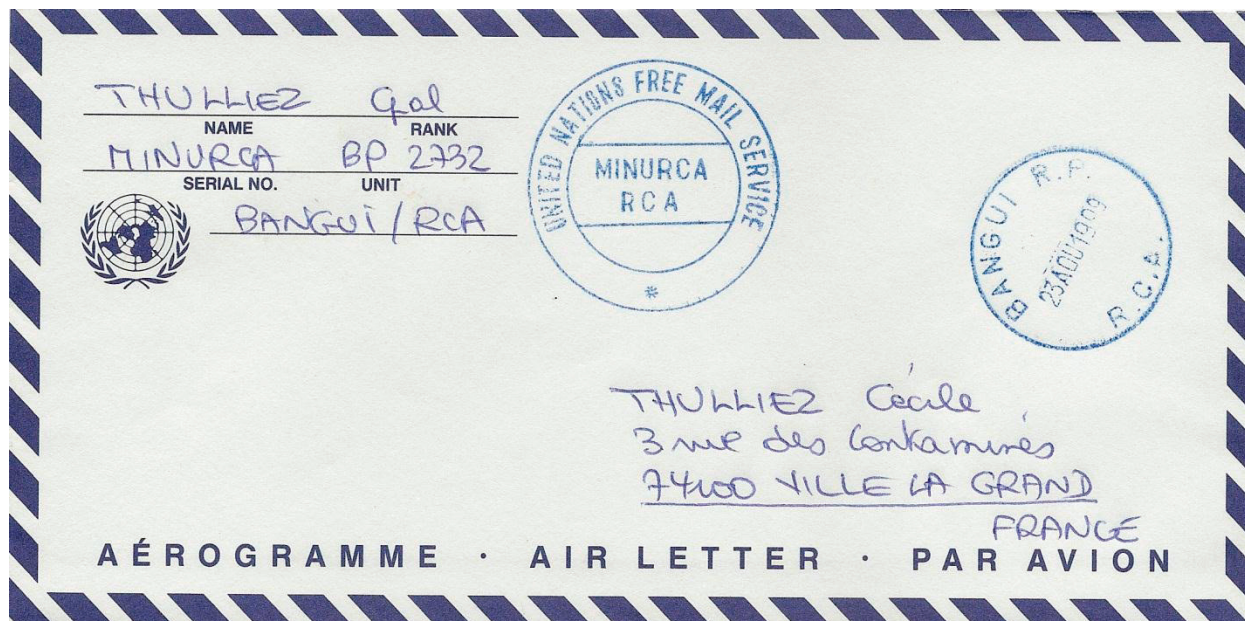 THULLIEZ Gal
NAME RANK
MINURCA BP 2732
SERIAL NO. UNIT
BANGUI / RCA
UNITED NATIONS FREE MAIL SERVICE
MINURCA
RCA
*
BANGUI R.P.
23 AOU 1999
R.C.A.
THULLIEZ Cécile
3 rue des Contamines
74100 VILLE LA GRAND
FRANCE
AÉROGRAMME · AIR LETTER · PAR AVION